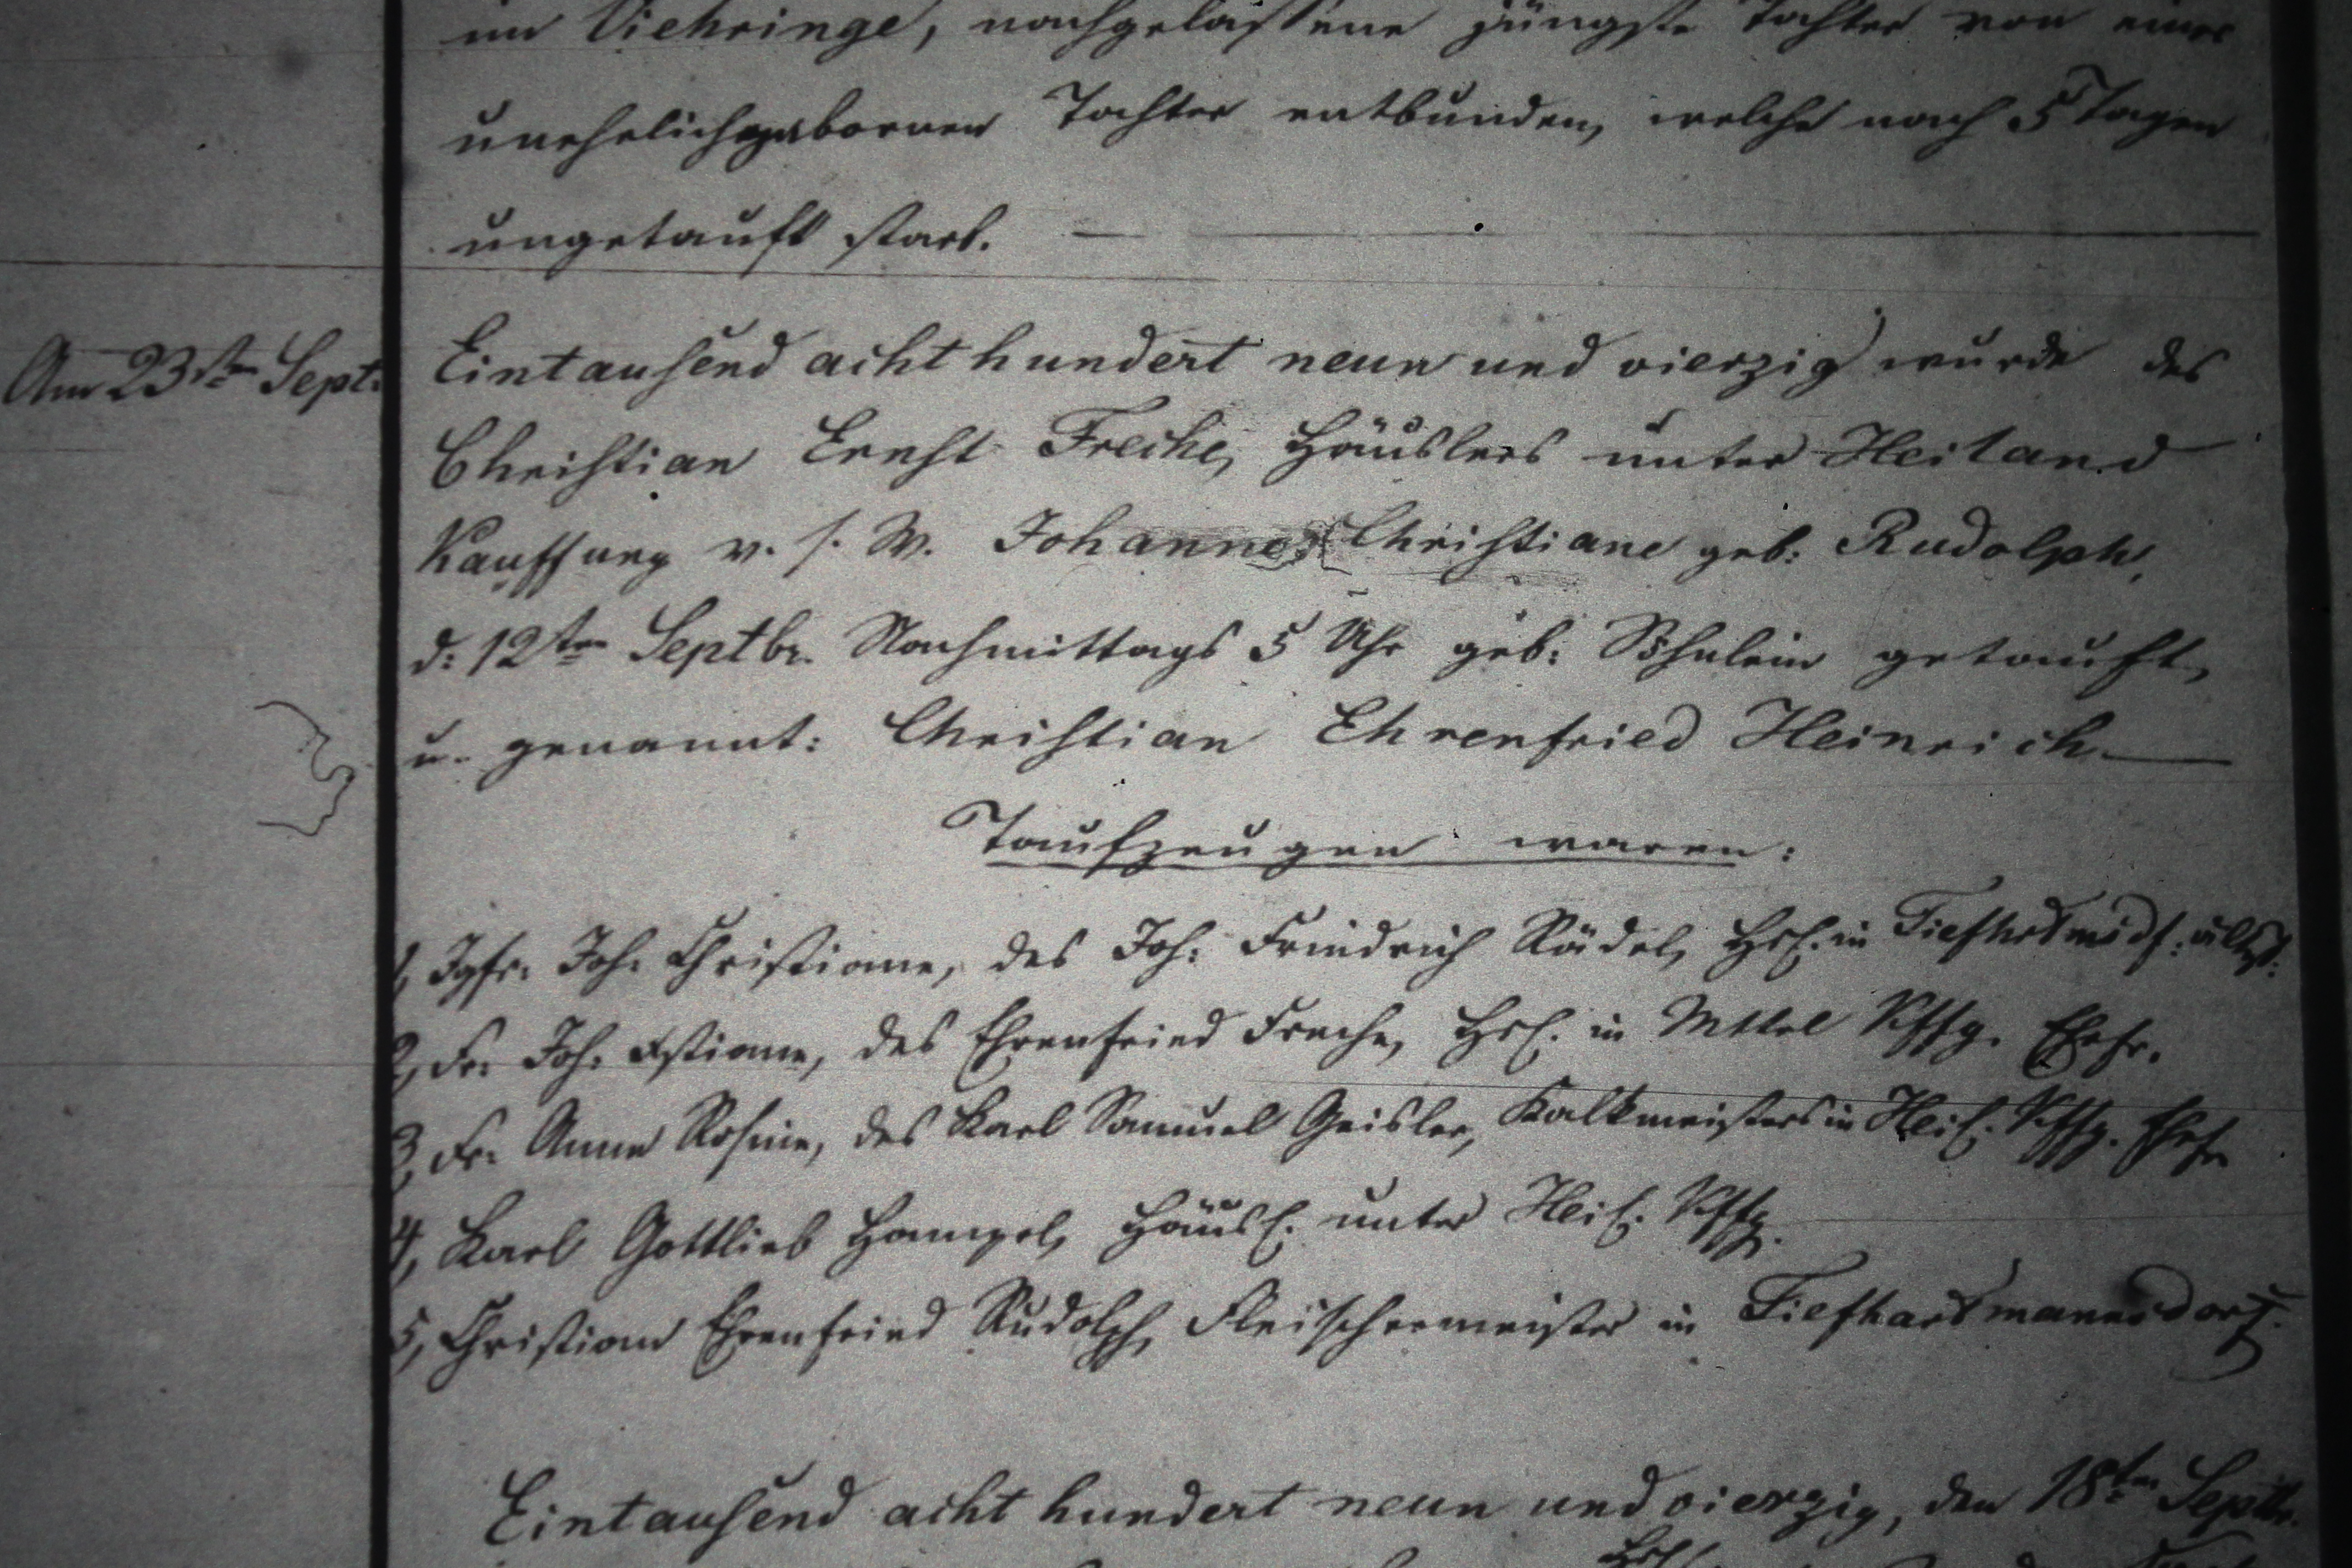 im Viehringe, nachgelassene jüngste Tochter von einer
unehelichgebornen Tochter entbunden, welche nach 5 Tagen
ungetauft starb. —
Am 23sten Sept. Eintausend acht hundert neun und vierzig wurde des
Christian Ernst Freche, Häuslers unter Heiland
Kauffung v. s. W. Johanne Christiane geb: Rudolph,
d: 12ten Septbr. Nachmittags 5 Uhr geb: Söhnlein getauft,
u. genannt: Christian Ehrenfried Heinrich —
Taufzeugen waren:
1, Jgfr. Joh. Christiane, des Joh: Friedrich Rädel, Hsl. in Tiefhrtmsdf: ältest:
2, Fr. Joh: Xstiane, des Ehrenfried Freche, Hsl. in Mttel Kffg. Ehefr.
3, Fr. Anna Rosine, des Karl Samuel Geisler, Kalkmeisters in Heil. Kffg. Ehefr
4, Karl Gottlieb Hampel, Häusl. unter Heil. Kffg.
5, Christian Ehrenfried Rudolph, Fleischermeister in Tiefhartmannsdorf.
Eintausend acht hundert neun und vierzig, den 18ten Septbr.